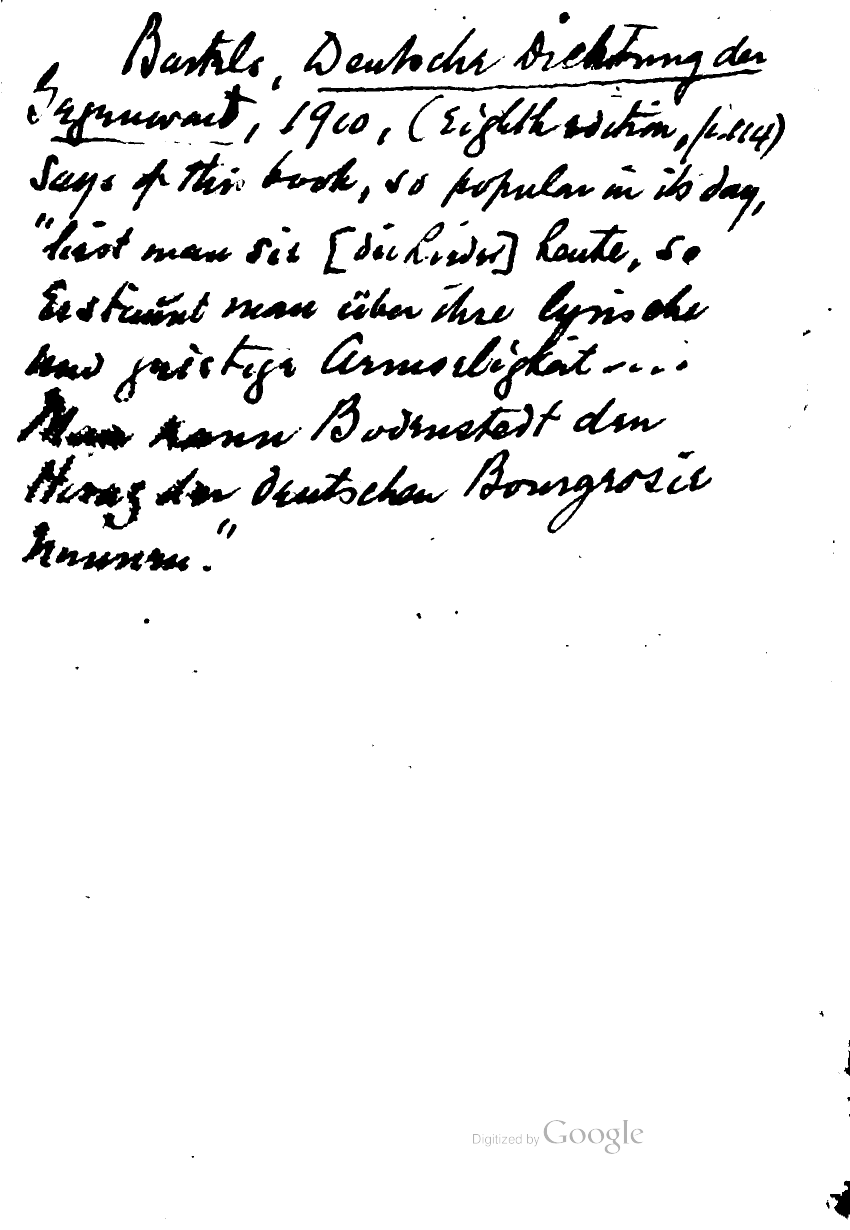 Bartels, Deutsche Dichtung der
Gegenwart, 1910, (Eighth edition, p.114)
says of this book, so popular in its day,
"liest man sie [die Lieder] heute, so
Erstaunt man über ihre lyrische
und geistige Armseligkeit....
Man kann Bodenstedt den
Horaz der deutschen Bourgeosie
nennen."
Digitized by Google